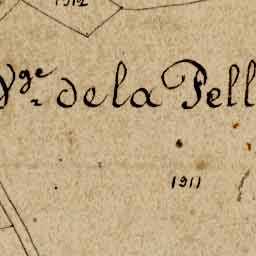 1912
Vge. de la Pell
1911